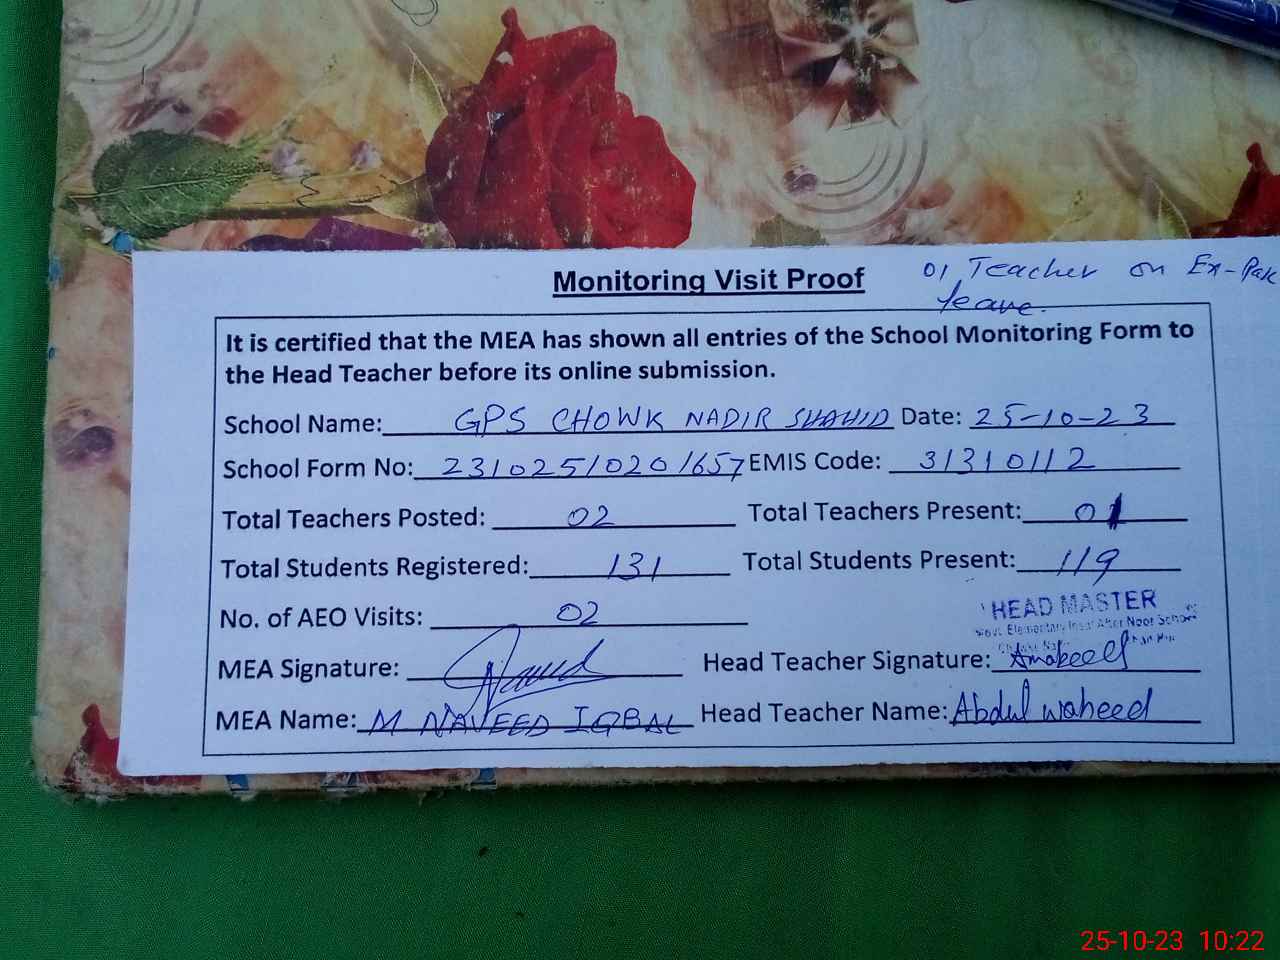 Monitoring Visit Proof
01 Teacher on Ex-Pak
leave.
It is certified that the MEA has shown all entries of the School Monitoring Form to
the Head Teacher before its online submission.
School Name: GPS CHOWK NADIR SHAHID Date: 25-10-23
School Form No: 23102510201657 EMIS Code: 31310112
Total Teachers Posted: 02 Total Teachers Present: 01
Total Students Registered: 131 Total Students Present: 119
No. of AEO Visits: 02
HEAD MASTER
Govt. Elementary After Noor School
MEA Signature: Head Teacher Signature:
MEA Name: M NAVEED IQBAL Head Teacher Name: Abdul waheed
25-10-23 10:22